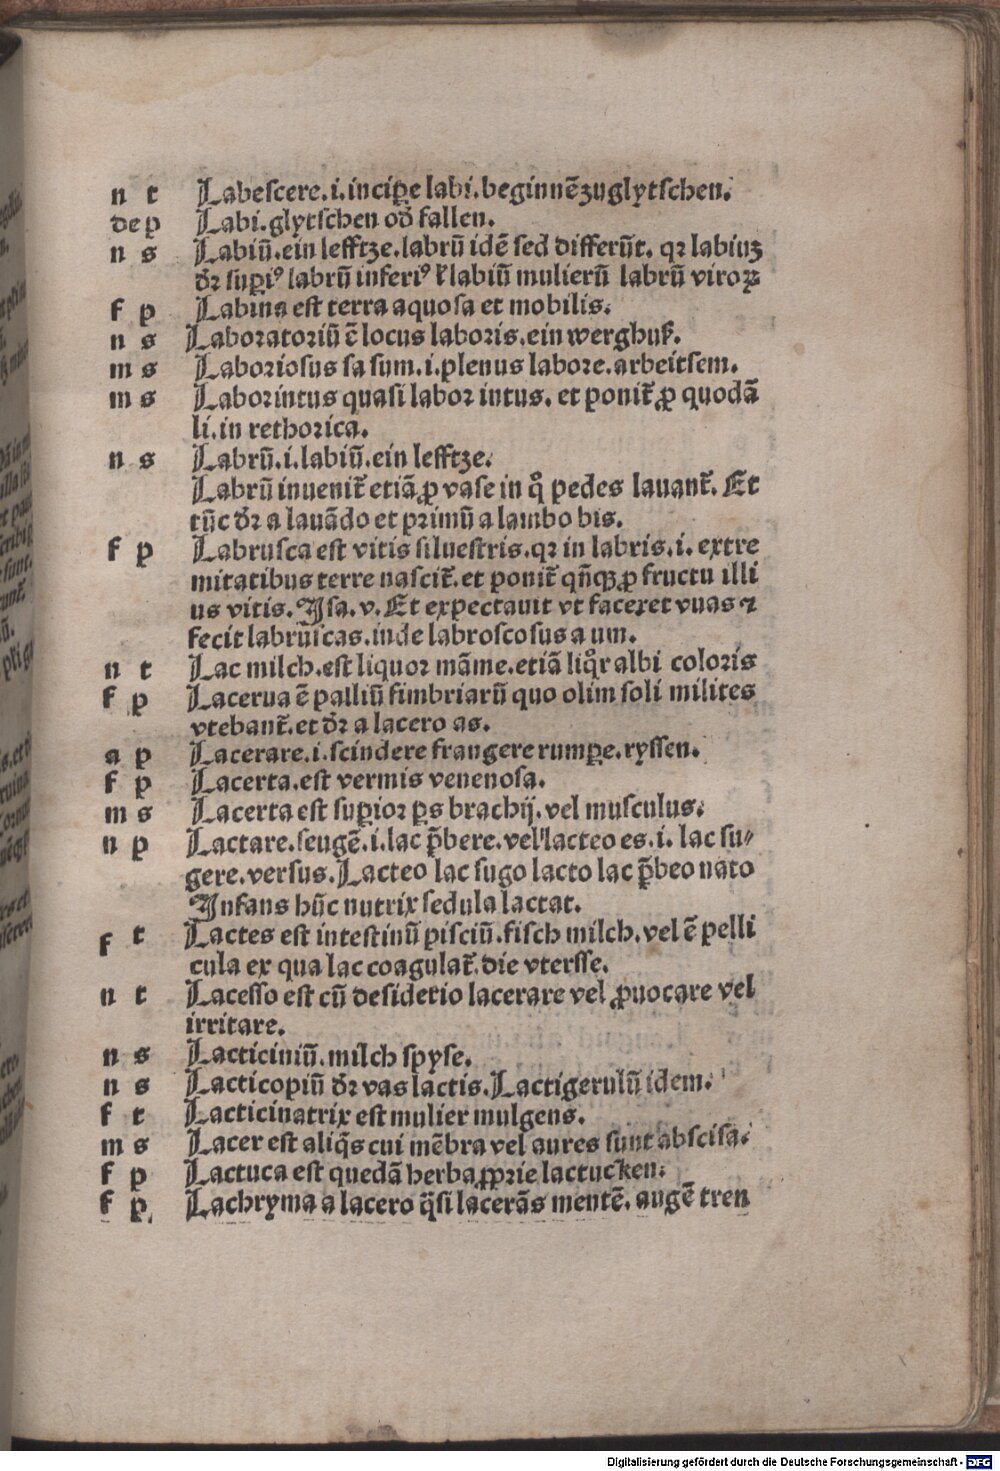 n t Labescere.i.incipe̲ labi.beginnēzuglytschen.
dep Labi.glytschen od̕ fallen.
n s Labiū.ein lefftze.labrū idē sed differūt. qꝛ labiuꝫ
d̕ꝛ supiꝰ labrū inferiꝰ ł labiū mulierū labrū viroꝝ
f p Labina est terra aquosa et mobilis.
n s Laboratoriū ē locus laboris.ein werghuß.
m s Laboriosus sa sum.i.plenus labore.arbeitsem.
m s Laborintus quasi labor intus. et ponit̄ ꝓ quodā
li.in rethorica.
n s Labrū.i.labiū.ein lefftze.
Labrū inuenit̄ etiā ꝓ vase in q̊ pedes lauant̄. Et
tūc d̕ꝛ a lauādo et primū a lambo bis.
f p Labrusca est vitis siluestris.qꝛ in labris.i. extre
mitatibus terre nascit̄.et ponit̄ qn̄qꝫ ꝓ fructu illi
us vitis. Isa.v. Et expectauit vt faceret vuas ⁊
fecit labruscas.inde labroscosus a um.
n t Lac milch.est liquor māme.etiā liq̊r albi coloris
f p Lacerua ē palliū fimbriarū quo olim soli milites
vtebant̄.et d̕ꝛ a lacero as.
a p Lacerare.i.scindere frangere rumꝑe.ryssen.
f p Lacerta.est vermis venenosa.
m s Lacerta est suꝑior ꝑs brachij.vel musculus.
n p Lactare.seugē.i.lac p̄bere.vel lacteo es.i. lac su⸗
gere.versus.Lacteo lac sugo lacto lac p̄beo nato
Infans hūc nutrix sedula lactat.
f t Lactes est intestinū pisciū.fisch milch.vel ē pelli
cula ex qua lac coagulat̄.die vtersse.
n t Lacesso est cū desiderio lacerare vel ꝓuocare vel
irritare.
n s Lacticiniū.milch spyse.
n s Lacticopiū d̕ꝛ vas lactis.Lactigerulū idem.
f t Lacticinatrix est mulier mulgens.
m s Lacer est aliq̄s cui mēbra vel aures sunt abscisa.
f p Lactuca est quedā herba ꝓprie lactucken.
f p. Lachryma a lacero q̄si lacerās mentē. augē tren
Digitalisierung gefördert durch die Deutsche Forschungsgemeinschaft - DFG